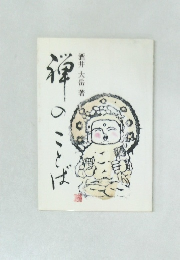 禅のことば
酒井大岳 著